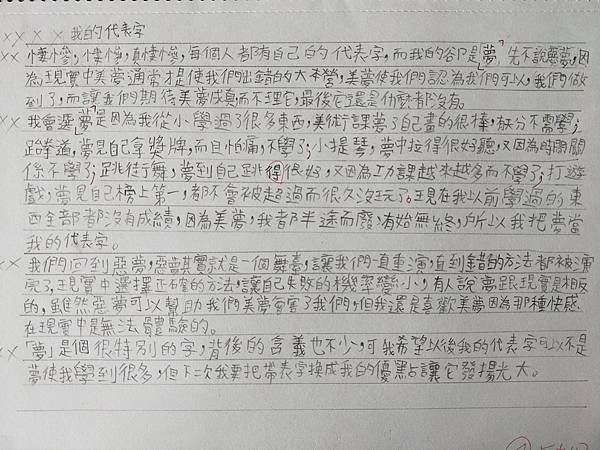 ×× × × 我的代表字
×× 悽慘，悽慘，真悽慘，每個人都有自己的代表字，而我的卻是「夢」，先不說惡夢，因
為現實中美夢通常才是使我們出錯的大本營，美夢使我們認為我們可以，我們做
到了，而讓我們期待美夢成真而不理它，最後它還是什麼都沒有。
×× 我會選「夢」是因為我從小學過了很多東西，美術課夢了自己畫的很棒，
跆拳道，夢見自己拿獎牌，而且怕痛，不學了；小提琴，夢中拉得很好聽，又因為時間關
係不學了；跳街舞，夢到自己跳得很好，又因為功課越來越多而不學了；打遊
戲，夢見自己榜上第一，都不會被超過而很久沒玩了。現在我以前學過的東
西全部都沒有成績，因為美夢，我都半途而廢，有始無終，所以我把夢當
我的代表字。
×× 我們回到惡夢，惡夢其實就是一個舞臺，讓我們一直重演，直到錯的方法都被演
完了，現實中選擇正確的方法，讓自己失敗的機率變小，有人說夢跟現實是相反
的，雖然惡夢可以幫助我們，美夢會害了我們，但我還是喜歡美夢因為那種快感
在現實中是無法體驗的。
××「夢」是個很特別的字，背後的含義也不少，可我希望以後我的代表字可以不是
夢使我學到很多，但下次我要把帶表字換成我的優點，讓它發揚光大。